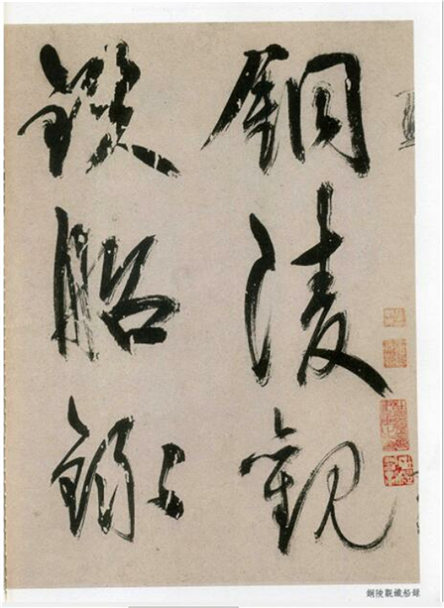 銅陵觀
鐵船錄
銅陵觀鐵船錄